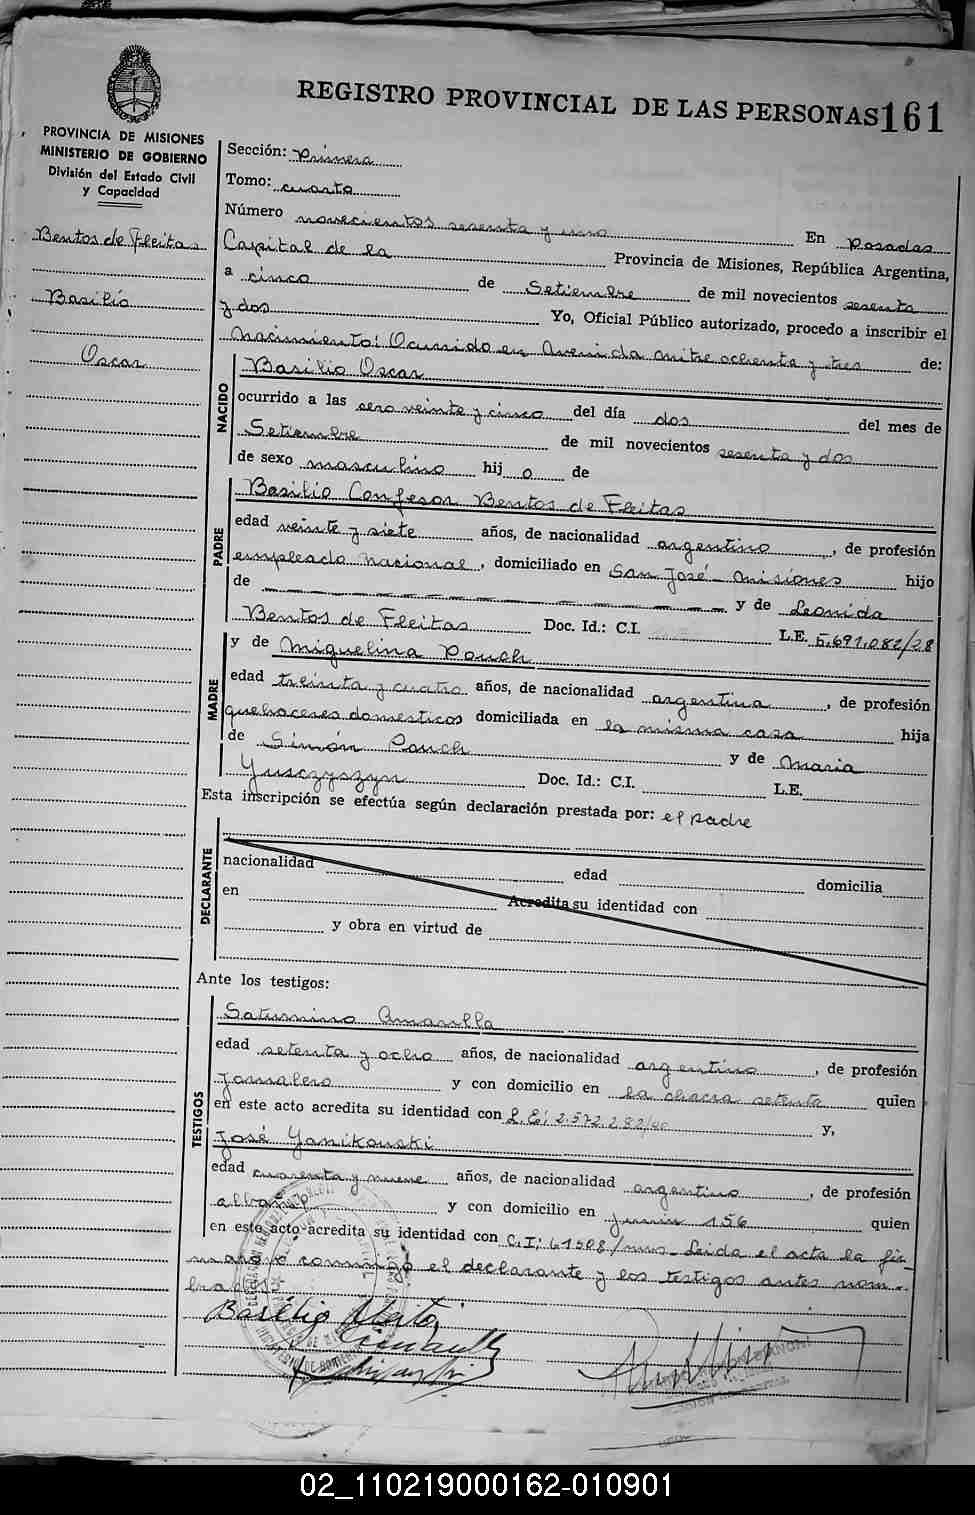 REGISTRO PROVINCIAL DE LAS PERSONAS 161
PROVINCIA DE MISIONES
MINISTERIO DE GOBIERNO
División del Estado Civil
y Capacidad
Bentos de Fleitas
Basilio
Oscar
Sección: Primera
Tomo: cuarto
Número novecientos sesenta y uno En Posadas
Capital de la Provincia de Misiones, República Argentina,
a cinco de Setiembre de mil novecientos sesenta
y dos Yo, Oficial Público autorizado, procedo a inscribir el
nacimiento: Ocurrido en Avenida Mitre ochenta y tres de:
NACIDO
Basilio Oscar
ocurrido a las cero veinte y cinco del día dos del mes de
Setiembre de mil novecientos sesenta y dos
de sexo masculino hij o de
PADRE
Basilio Confesor Bentos de Fleitas
edad veinte y siete años, de nacionalidad argentino, de profesión
empleado nacional, domiciliado en San José Misiones hijo
de y de Leonida
Bentos de Fleitas Doc. Id.: C.I. L.E. 5.691.082/28
MADRE
y de Miguelina Pouch
edad treinta y cuatro años, de nacionalidad argentina, de profesión
quehaceres domesticos domiciliada en la misma casa hija
de Simón Pouch y de Maria
Yusczyszyn Doc. Id.: C.I. L.E.
Esta inscripción se efectúa según declaración prestada por: el padre
DECLARANTE
nacionalidad edad domicilia
en Acredita su identidad con
y obra en virtud de
Ante los testigos:
TESTIGOS
Saturnino Amarilla
edad setenta y ocho años, de nacionalidad argentino, de profesión
Jornalero y con domicilio en la chacra setenta quien
en este acto acredita su identidad con L.E: 2.572.282/40 y,
José Yanikouski
edad cuarenta y nueve años, de nacionalidad argentino, de profesión
albañil y con domicilio en Junin 156 quien
en este acto acredita su identidad con C.I: 61508/mns. Leida el acta la fir-
maron conmigo el declarante y los testigos antes nom-
brados.
02_110219000162-010901